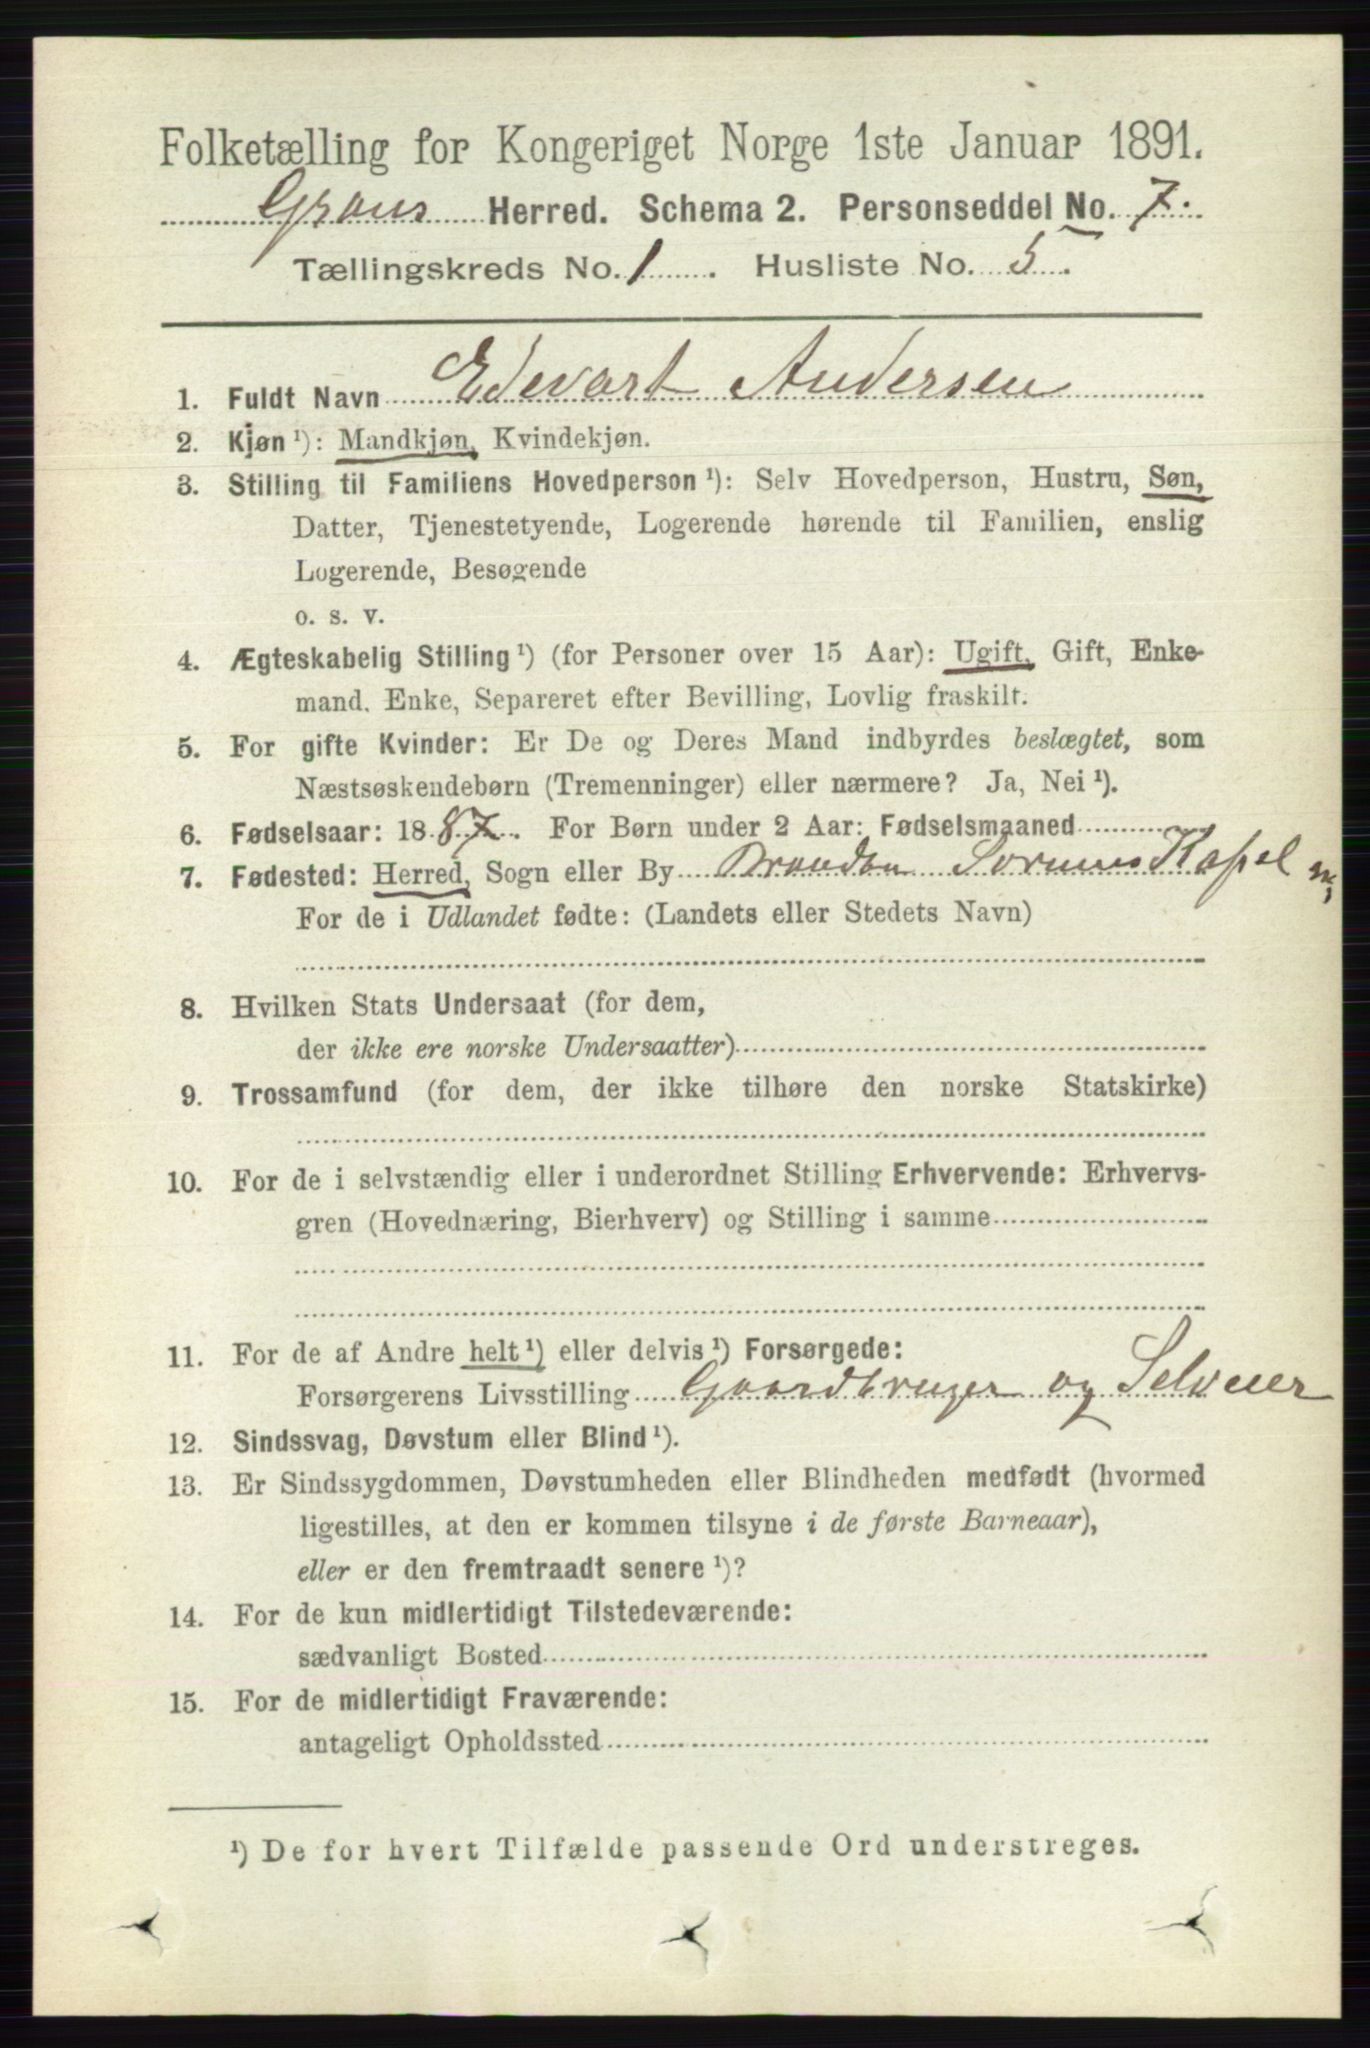 Folketælling for Kongeriget Norge 1ste Januar 1891.
Grans Herred. Schema 2. Personseddel No. 7.
Tællingskreds No. 1. Husliste No. 5.
1. Fuldt Navn Edevart Andersen
2. Kjøn ¹): Mandkjøn, Kvindekjøn.
3. Stilling til Familiens Hovedperson ¹): Selv Hovedperson, Hustru, Søn,
Datter, Tjenestetyende, Logerende hørende til Familien, enslig
Logerende, Besøgende
o. s. v.
4. Ægteskabelig Stilling ¹) (for Personer over 15 Aar): Ugift, Gift, Enke-
mand. Enke, Separeret efter Bevilling, Lovlig fraskilt.
5. For gifte Kvinder: Er De og Deres Mand indbyrdes beslægtet, som
Næstsøskendebørn (Tremenninger) eller nærmere? Ja, Nei ¹).
6. Fødselsaar: 1887. For Børn under 2 Aar: Fødselsmaaned
7. Fødested: Herred, Sogn eller By Brandbu Sørums Kapel
For de i Udlandet fødte: (Landets eller Stedets Navn)
8. Hvilken Stats Undersaat (for dem,
der ikke ere norske Undersaatter)
9. Trossamfund (for dem, der ikke tilhøre den norske Statskirke)
10. For de i selvstændig eller i underordnet Stilling Erhvervende: Erhvervs-
gren (Hovednæring, Bierhverv) og Stilling i samme
11. For de af Andre helt ¹) eller delvis ¹) Forsørgede:
Forsørgerens Livsstilling Gaardbruger og Selveier
12. Sindssvag, Døvstum eller Blind ¹).
13. Er Sindssygdommen, Døvstumheden eller Blindheden medfødt (hvormed
ligestilles, at den er kommen tilsyne i de første Barneaar),
eller er den fremtraadt senere ¹)?
14. For de kun midlertidigt Tilstedeværende:
sædvanligt Bosted
15. For de midlertidigt Fraværende:
antageligt Opholdssted
¹) De for hvert Tilfælde passende Ord understreges.